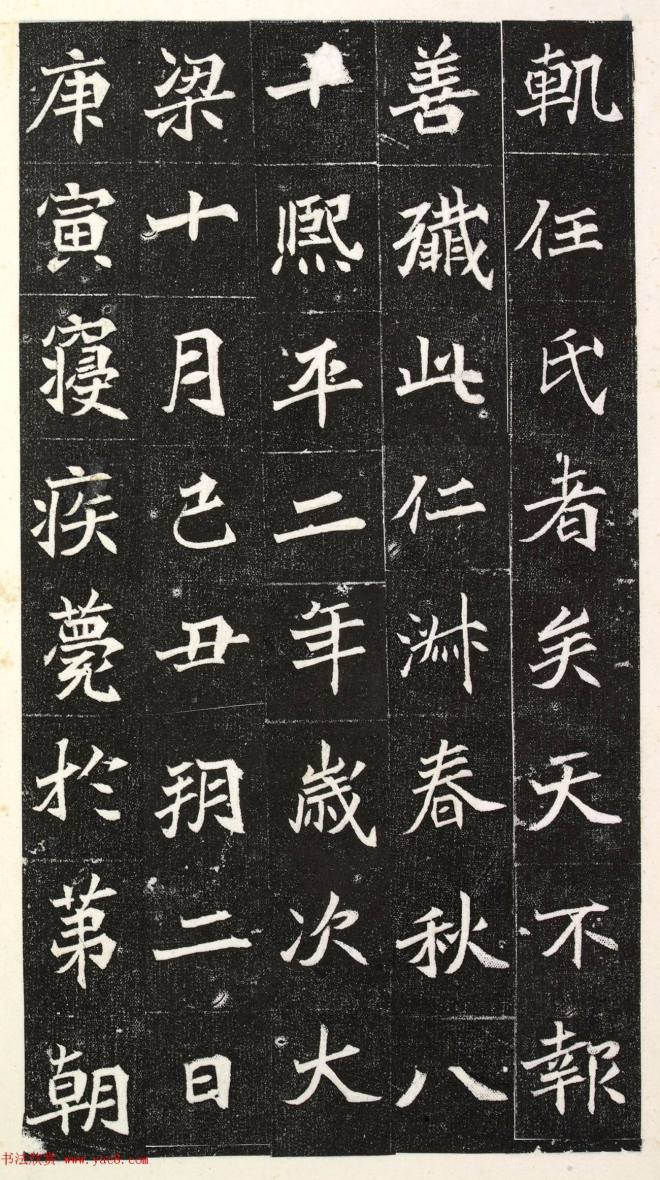 軓任氏者矣天不報
善殲此仁淋春秋八
十熈平二年歲次大
梁十月己丑朔二日
庚寅寢疾薨於苐朝
书法欣赏 www.yac8.com